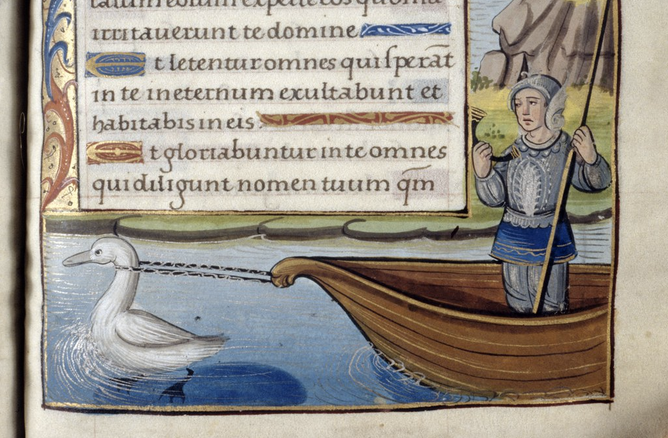 tatum eorum expelle eos quonia
irritauerunt te domine
Et letentur omnes qui sperãt
in te in eternum exultabunt et
habitabis in eis
Et gloriabuntur in te omnes
qui diligunt nomen tuum qm̃